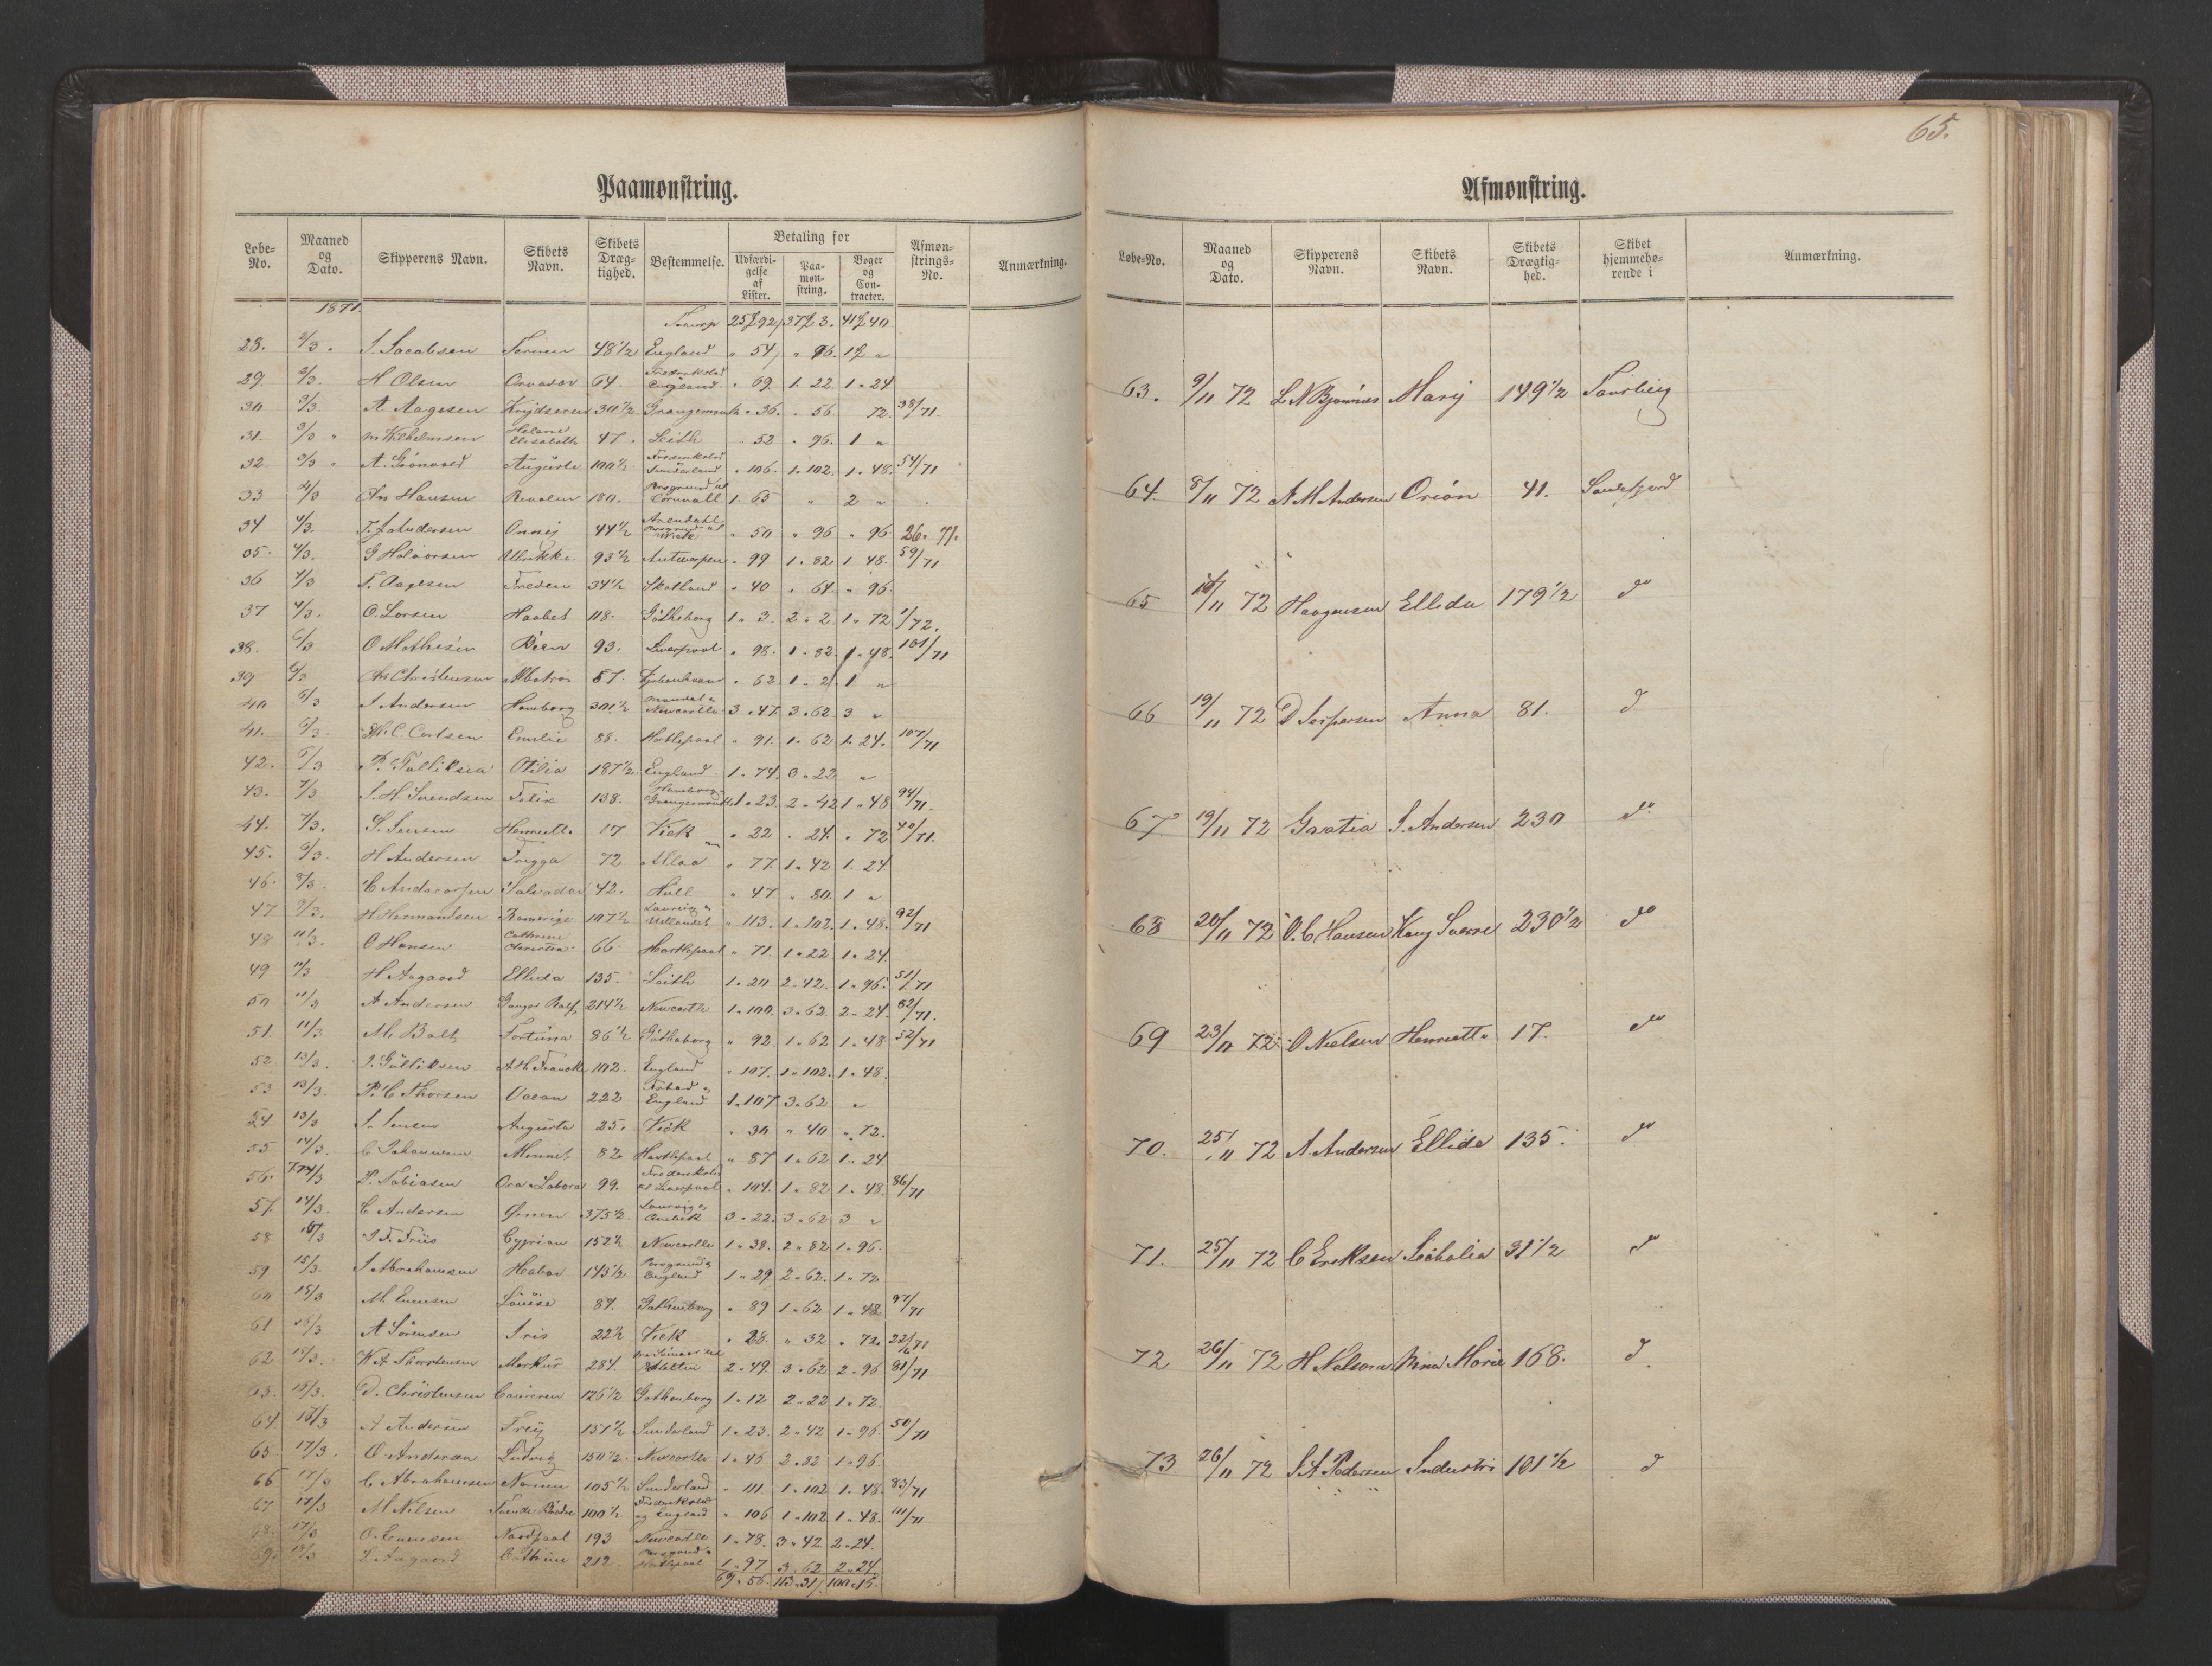 65.
Paamønstring.
Løbe-No. Maaned og Dato. Skipperens Navn. Skibets Navn. Skibets Drægtighed. Bestemmelse. Betaling for Udfærdigelse af Lister. Paamønstring. Bøger og Contracter. Afmønstrings-No. Anmærkning.
1871.
28. 2/3. S. Jacobsen 48 1/2 England " 54 " 96. 1 "
29 2/3. H Olsen 64. England " 69 1. 22 1 " 24
30 3/3. A Aagesen 30 1/2 Grangemouth " 36. " 56 72. 38/71.
31. 3/3 " M Wilhelmsen Helene Elisabeth 47. Leith " 52 " 96. 1 "
32. 3/3 " A. Grönvold Auguste 100 1/2 Frederikstad Sunderland " 106. 1. 102. 1. 48. 54/71
33 4/3 Chr Hansen 180. Porsgrund Cornwall 1. 65 " 2 "
34 4/3. Andersen Onney 44 1/2 Arendahl Wick " 50 " 96 " 96. 26. 71.
35. 4/3. G Halvorsen Ulrikke 93 1/2 Antwerpen " 99 1. 82 1 48. 59/71
36 4/3 T. Aagesen Freden 34 1/2 Skotland " 40 " 64. " 96.
37 4/3. O. Larsen Haabet 118. Götheborg 1 " 3. 2 " 2. 1 " 72 1/72.
38. 6/3 O Mathisen Bien 93. Liverpool " 98. 1 " 82. 1. 48. 101/71
39 6/3 Chr Christensen Albatros 57. " 62. 1 " 2. 1 "
40 6/3 S Andersen Hamborg 301 1/2 Mandal Newcastle 3. 47. 3. 62. 3 "
41. 6/3. C. Carlsen Emilie 88. Hartlepool " 91. 1. 62 1. 24. 107/71
42. 6/3 Otilia 187 1/2 England. 1 " 74. 3 " 22 "
43. 7/3 S. H. Svendsen Felix 138. Grangemouth 1 " 23. 2 " 42 1 " 48 94/71.
44. 7/3. S. Jensen Henriette 17 Vick " 22 " 24. " 72 40/71.
45. 8/3. H Andersen Frigga 72 Alloa " 77. 1 " 42 1. 24
46. 8/3. Salvador 42. Hull " 47 " 80. 1 "
47 9/3. H Hermandsen Romerige 107 1/2 Laurvig " 113. 1 " 102. 1. 48. 92/71
48 11/3. O Hansen Cathrine Christine 66 Hartlepool " 71. 1 " 22 1 " 24.
49 11/3 H Aagaard Ellida 135. Leith 1 " 20 2 " 42. 1 " 96. 51/71
50 11/3 A Andersen Ganger Rolf 214 1/2 Newcastle 1 " 100. 3 " 62. 2 " 24. 82/71.
51. 11/3 M. Balt Fortuna 86 1/2 Götheborg " 92. 1 " 62 1 " 48 52/71
52 13/3. J. Gulliksen 102. England " 107. 1 " 102. 1 " 48.
53 13/3. P. C Thorsen Ocean 222 England 1. 107 3 " 62 "
54 13/3 S. Jensen Augusta 25. Vick " 30 " 40 " 72.
55 14/3. C Johannesen Minnet 82 Hartlepool " 87 1 " 62 1 " 24
56. 14/3 P. Tobiasen Ora & Labora 99. Frederikstad Liverpool " 104. 1 " 82 1 " 48. 86/71
57. 14/3. C Andersen Ørnen 375 1/2 Laurvig 3 " 22. 3 " 62 3 "
58 J. F. Friis Cyprian 152 1/2 Newcastle 1 " 38. 2 " 82 1 " 96.
59 15/3. S Abrahamsen 143 1/2 Porsgrund England 1 " 29 2 " 62. 1 " 72
60 15/3 M. Evensen Louise 84. Gothenborg " 89 1 " 62 1 " 48. 97/71
61 16/3 A Sörensen Iris 22 1/2 Vick " 28. " 32 " 72. 22/71
62 Markur 284. 2 " 49. 3 " 62 2 " 96 81/71
63. 15/3. D. Christensen 126 1/2 Gothenborg 1 " 12 2 " 22 1 " 72.
64. A Andersen Frey 151 1/2 Sunderland 1 " 23. 2 " 42 1 " 96. 50/71
65 17/3. O Andersen Ludvig 150 1/2 Newcastle 1 " 46 2 " 82 1 " 96.
66 C Abrahamsen Nornen 105 1/2 Sunderland " 111 1 " 102 1. 48. 83/71
67 M Nilsen 100 1/2 Frederikstad og England " 106 1 " 102 1 " 48. 111/71
68. 17/3 O. Evensen Nordpoal 193 Newcastle 1 " 78. 3 " 42 2 " 24.
69. L Aagaard Cathrine 212 Porsgrund Hartlepool 1 " 97 3 " 62 2 " 24
69 " 56. 113 " 31 100 " 16.
Afmønstring.
Løbe-No. Maaned og Dato. Skipperens Navn. Skibets Navn. Skibets Drægtighed. Skibet hjemmehørende i Anmærkning.
63. 9/11 72 L N Bjønnes Mary 149 1/2 Tønsberg
64. 8/11 72 A M Andersen Orion 41. Sandefjord
65 72 Haagensen Ellida 179 1/2 do
66 19/11 72 D Jespersen Anna 81. d
67 19/11 72 Gratia S. Andersen 230 do
68 20/11 72 O. C Hansen Kong Sverre 230 1/2 do
69 23/11 72 O Nielsen Henriette 17. do
70. 25/11 72 A. Andersen Ellida 135. do
71. 25/11 72 C Eriksen 31 1/2 d
72 26/11 72 H Nilsen Anna Marie 168. d
73 26/11 72 S A Pedersen Industri 101 1/2 d